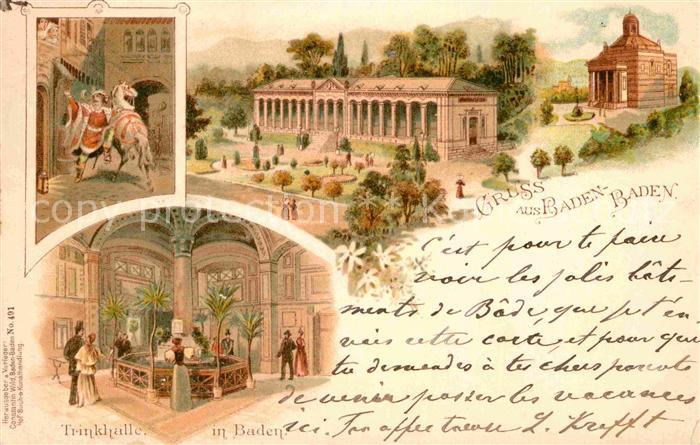 GRUSS
AUS BADEN-BADEN.
C'est pour te faire
voir les jolis bâti-
ments de Bâde que je t'en
vais cette carte, et pour que
tu demandes à tes chers parents
de venir passer les vacances
ici. Ton affectueux L. Krefft
Trinkhalle. in Baden.
Herausgeber u. Verleger:
Constantin Wild, Baden-Baden No. 491
Hof Buch- u. Kunsthandlung.